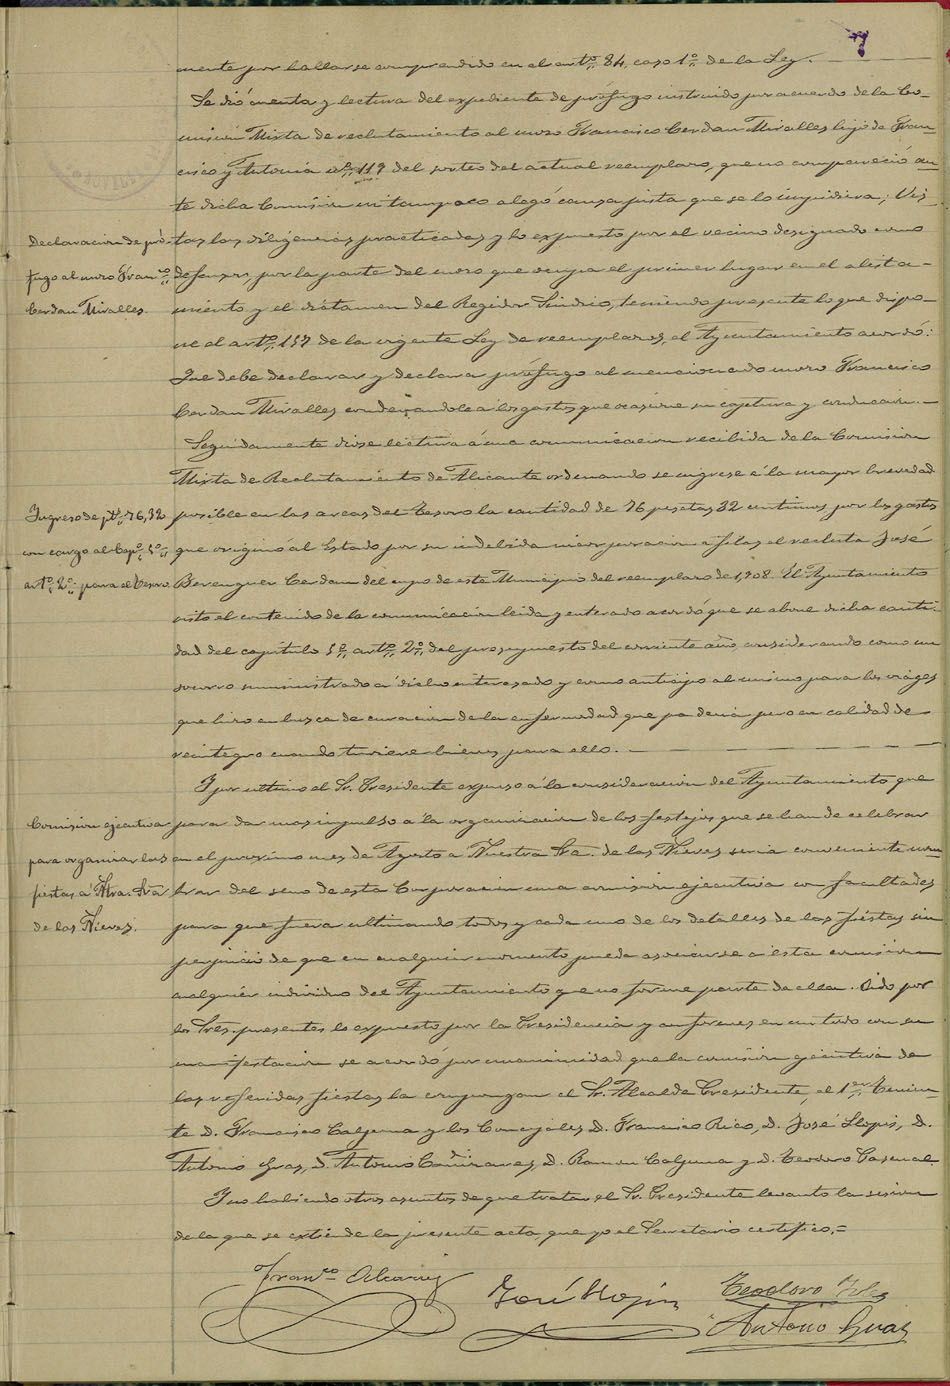 7
mente por hallarse comprendido en el artº 84, caso 1º de la Ley.
Se dió cuenta y lectura del expediente de prófugo instruido por acuerdo de la Co-
misión Mixta de reclutamiento al mozo Francisco Cerdan Miralles hijo de Fran-
cisco y Antonia nº 119 del sorteo del actual reemplazo, que no compareció an-
te dicha Comisión ni tampoco alegó causa justa que se lo impidiera; Vis-
Declaracion de pró-
fugo al mozo Franco
Cerdan Miralles.
tas las diligencias practicadas y lo expuesto por el vecino designado como
defensor, por la parte del mozo que ocupa el primer lugar en el alista-
miento y el dictamen del Regidor Sindico, teniendo presente lo que dispo-
ne el artº 157 de la vigente Ley de reemplazos, el Ayuntamiento acordó:
Que debe declarar y declara prófugo al mencionado mozo Francisco
Cerdan Miralles condenandole a los gastos que ocasione su captura y conduccion.
Seguidamente diose lectura á una comunicacion recibida de la Comision
Mixta de Reclutamiento de Alicante ordenando se ingrese á la mayor brevedad
Ingreso de ptas 76,32
con cargo al Capº 5º
artº 2º para el Tesoro.
posible en las arcas del Tesoro la cantidad de 76 pesetas 32 centimos por los gastos
que originó al Estado por su indebida incorporacion a filas el recluta José
Berenguer Cerdan del cupo de este Municipio del reemplazo de 1,908. El Ayuntamiento
visto el contenido de la comunicacion leida y enterado acordó que se abone dicha canti-
dad del capitulo 5º artº 2º del presupuesto del corriente año, considerando como un
socorro suministrado a dicho interesado y como anticipo al mismo para los viages
que hizo en busca de curacion de la enfermedad que padecia pero en calidad de
reintegro cuando tuviere bienes para ello.
Y por ultimo el Sr. Presidente expuso á la consideracion del Ayuntamiento que
Comision ejecutiva
para organizar las
fiestas á Ntra. Sra
de las Nieves.
para dar mas impulso a la organizacion de los festejos que se han de celebrar
en el proximo mes de Agosto a Nuestra Sra. de las Nieves seria conveniente nom-
brar del seno de esta Corporacion una comision ejecutiva con facultades
para que fuera ultimando todos y cada uno de los detalles de las fiestas sin
perjuicio de que en cualquier momento pueda asociarse a esta comision
cualquier individuo del Ayuntamiento que no forme parte de ella. Oido por
los Sres. presentes lo expuesto por la Presidencia y conformes en un todo con su
manifestacion se acordó por unanimidad que la comision ejecutiva de
las referidas fiestas la compongan el Sr. Alcalde Presidente, el 1er Tenien-
te D. Francisco Calpena y los Concejales D. Francisco Rico, D. José Llopis, D.
Antonio Gras, D. Antonio Cañizares, D. Ramon Calpena y D. Teodoro Pascual.
Y no habiendo otros asuntos de que tratar el Sr. Presidente levanto la sesion
de la que se extiende la presente acta que yo el Secretario certifico.=
Franco Alcaraz
José
Teodoro
Antonio Gras